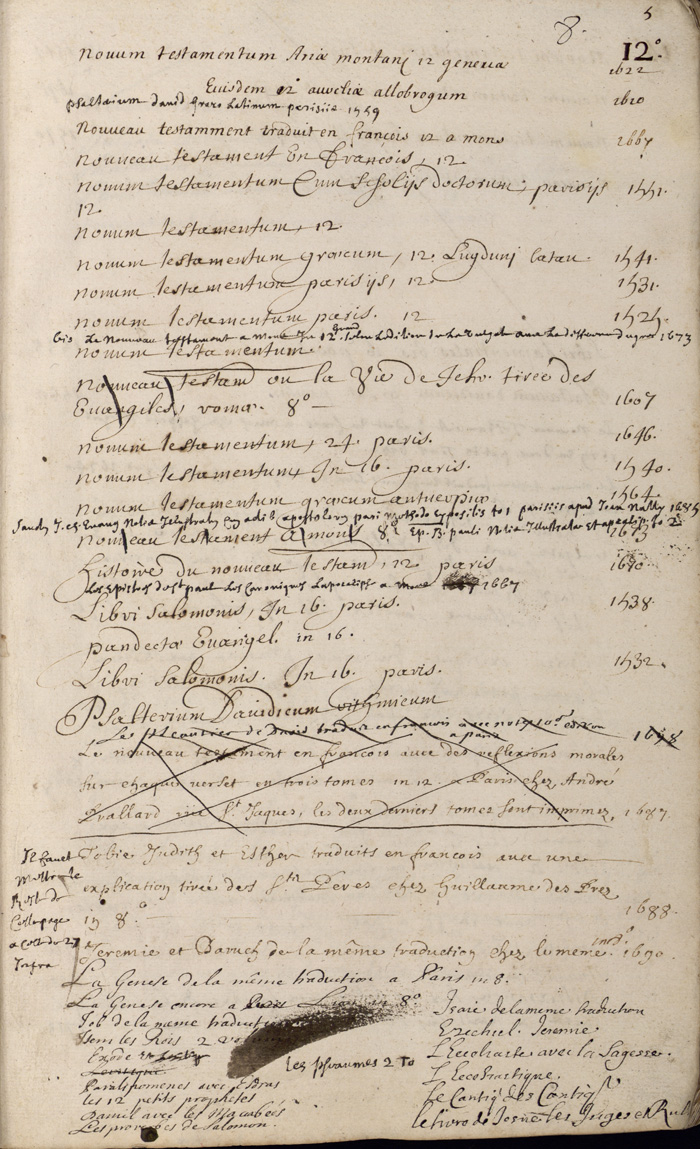 8. 5
12°
Novum testamentum Ariæ montani 12 geneva 1622
Eiusdem 12 aureliæ allobrogum 1610
psaltairum david græco Latinum parisiis 1559
Nouveau testamment traduit en françois 12 a mons 1667
Nouveau testament En françois, 12
Novum testamentum Cum scholijs doctorum, parisijs 1551.
12
Novum testamentum, 12
Novum testamentum græcum, 12. Lugduni batau. 1541.
Novum testamentum parisijs, 12 1531.
Novum testamentum paris. 12 1525.
bis Le Nouveau testtament a Mons in 12 selon Ledition La vulgate auec Les differances du grec 1673
Novum testamentum.
Nouveau testam ou la Vie de Jesus tirée des
Euangiles, 8° 1607
Novum testamentum, 24 paris. 1646.
Novum testamentum, In 16. paris. 1540.
Novum testamentum græcum antuerpiæ 1564
parisiis apud Jean
Nouveau testament a mons 8°
Histoire du nouveau testam, 12 paris 1670
Les Epistres de st paul Les Canoniques Lapocalips a mons 1667
Libri Salomonis, In 16. paris. 1538.
pandectæ Euangel. in 16.
Libri Salomonis. In 16. paris. 1532.
Psalterium Dauidicum
Le pseautier de Dauid traduit en francois auec notes
a paris
Le nouveau testament en francois auec des reflexions morales
sur chaque verset en trois tomes in 12. a Paris chez André
Pralard rue St. Jaques, les deux derniers tomes sont imprimez, 1687
Tobie Judith et Esther traduits en francois auec une
explication tirée des Sts Peres chez Guillaume des Prez
in 8° 1688.
Il faut
Mettre le
Reste de
Cette page
Infra
Jeremie et Baruch de la même traduction chez le meme in 8° 1690
La Genese de la même traduction a Paris in 8.
La Genese encore a in 8°
Job de la meme traduction
Item les Rois 2
Exode et
Paralipomenes avec Esdras
les 12 petits prophetes
Daniel avec les Macabées
Les proverbes de Salomon.
les pseaumes 2 To
Isaie de la meme traduction
Ezechiel Jeremie
L'Ecclesiaste avec la Sagesse.
L'Ecclesiastique.
Le Cantiq des Cantiq
le livre de Josué les Juges et Ruth